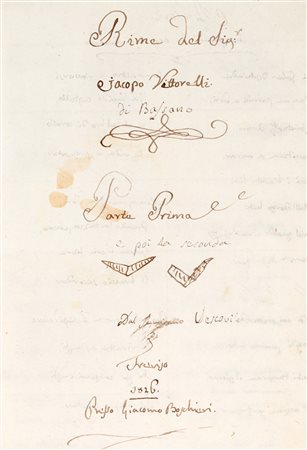 Rime del Sigr
Jacopo Vittorelli.
di Bassano
Parte Prima
e poi la seconda
Dal Vescovi
Treviso
1826.
Presso Giacomo Boschieri.